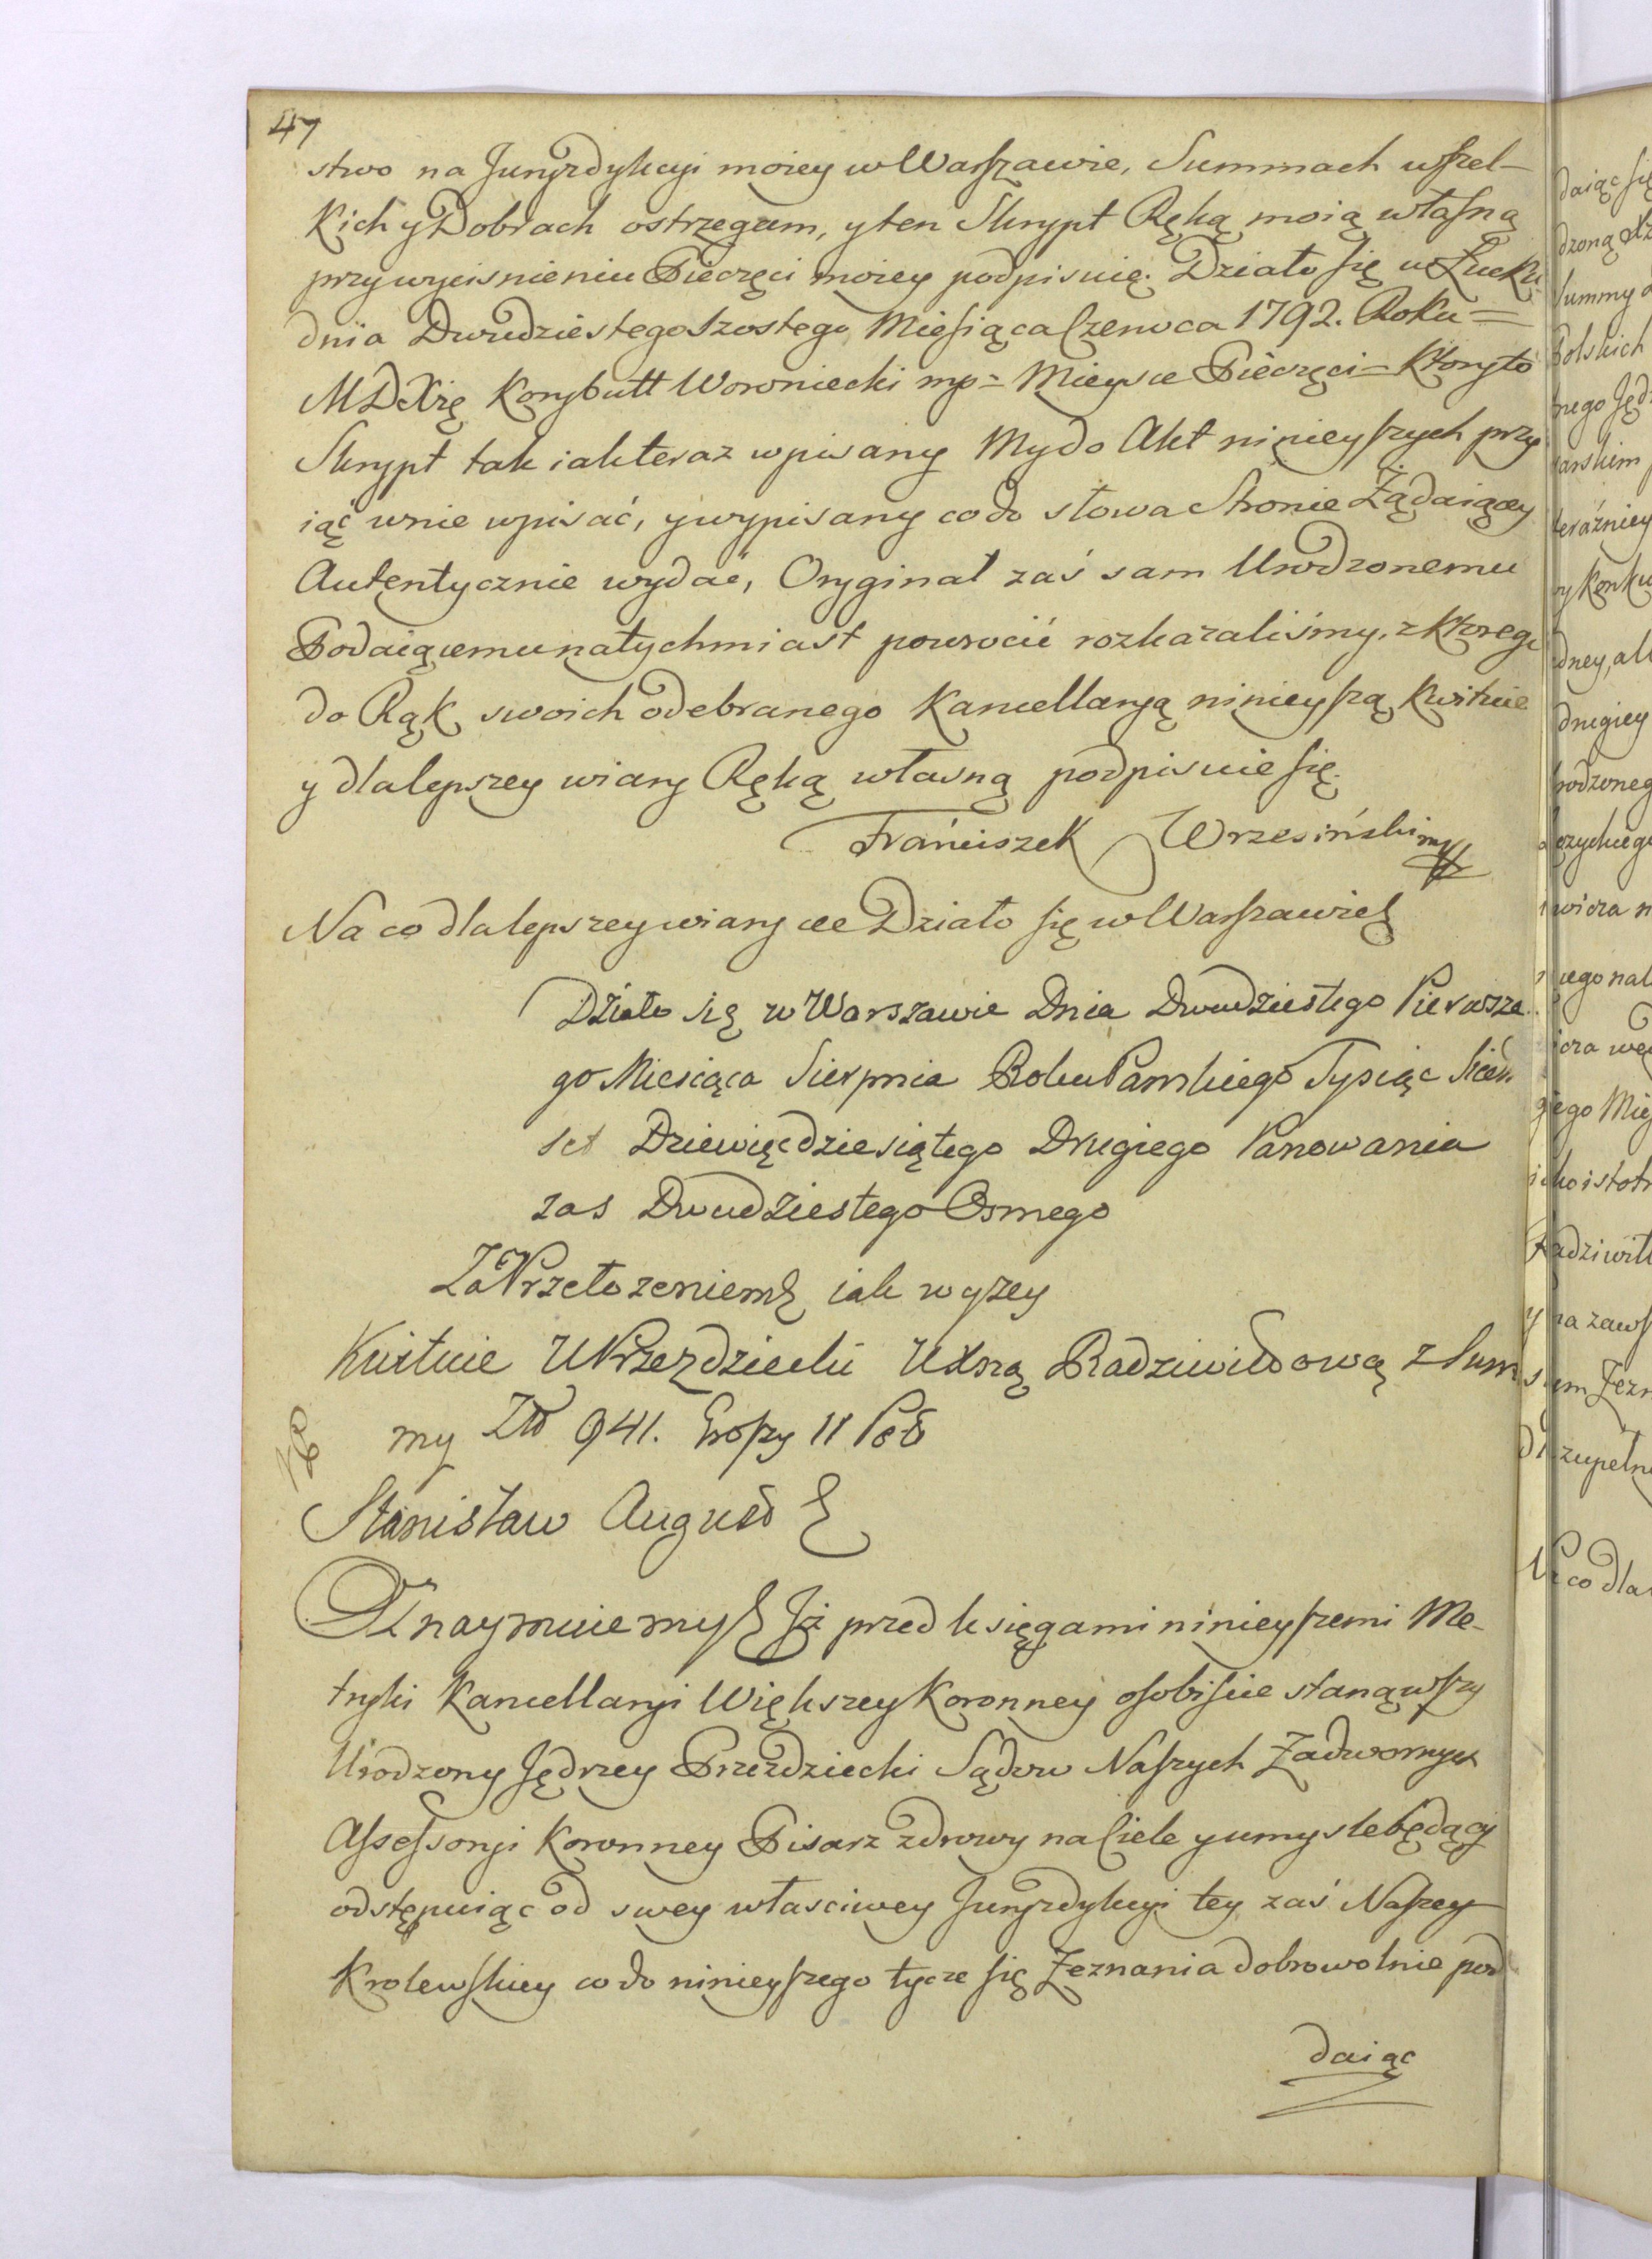 47
stwo na Juryzdykcyi moiey w Warszawie, Summach wszel-
kich y Dobrach ostrzegam, y ten Skrypt Ręką moią własną
przy wyciśnieniu Pieczęci moiey podpisuię. Działo się w Łucku
dnia Dwudziestego szostego Miesiąca Czerwca 1792. Roku =
MDXżę Korybutt Woroniecki mp = Mieysce Pieczęci = Ktoryto
Skrypt tak iak teraz wpisany My do Akt ninieyszych przy
iąć w nie wpisać, y wypisany co do słowa Stronie Żądaiącey
Autentycznie wydać, Oryginał zaś sam Urodzonemu
Podaiącemu natychmiast powrocić rozkazaliśmy, z ktorego
do Rąk swoich odebranego Kancellaryą ninieyszą kwituie
y dla lepszey wiary Ręką własną podpisuie się.
Franciszek Wrzesiński mp
Na co dla lepszey wiary &c Działo się w Warszawie
Działo się w Warszawie Dnia Dwudziestego Pierwsze
go Miesiąca Sierpnia Roku Pańskiego Tysiąc Siedm
set Dziewięćdziesiątego Drugiego Panowania
zas Dwudziestego Osmego
Za Przełożeniem iak wyzey
Kwituie U Przezdziecki U Xną Radziwiłłową z Sum
my Zł 941. Groszy 11 Pol
Stanisław August
Oznaymuiemy Iż przed księgami ninieyszemi Me-
tryki Kancellaryi Większey Koronney osobiscie stanąwszy
Urodzony Jędrzey Przezdziecki Sądow Naszych Zadwornych
Assessoryi Koronney Pisarz zdrowy na Ciele y umysle będący
odstępuiąc od swey własciwey Juryzdykcyi tey zaś Naszey
Krolewskiey co do ninieyszego tycze się Zeznania dobrowolnie pod
daiąc